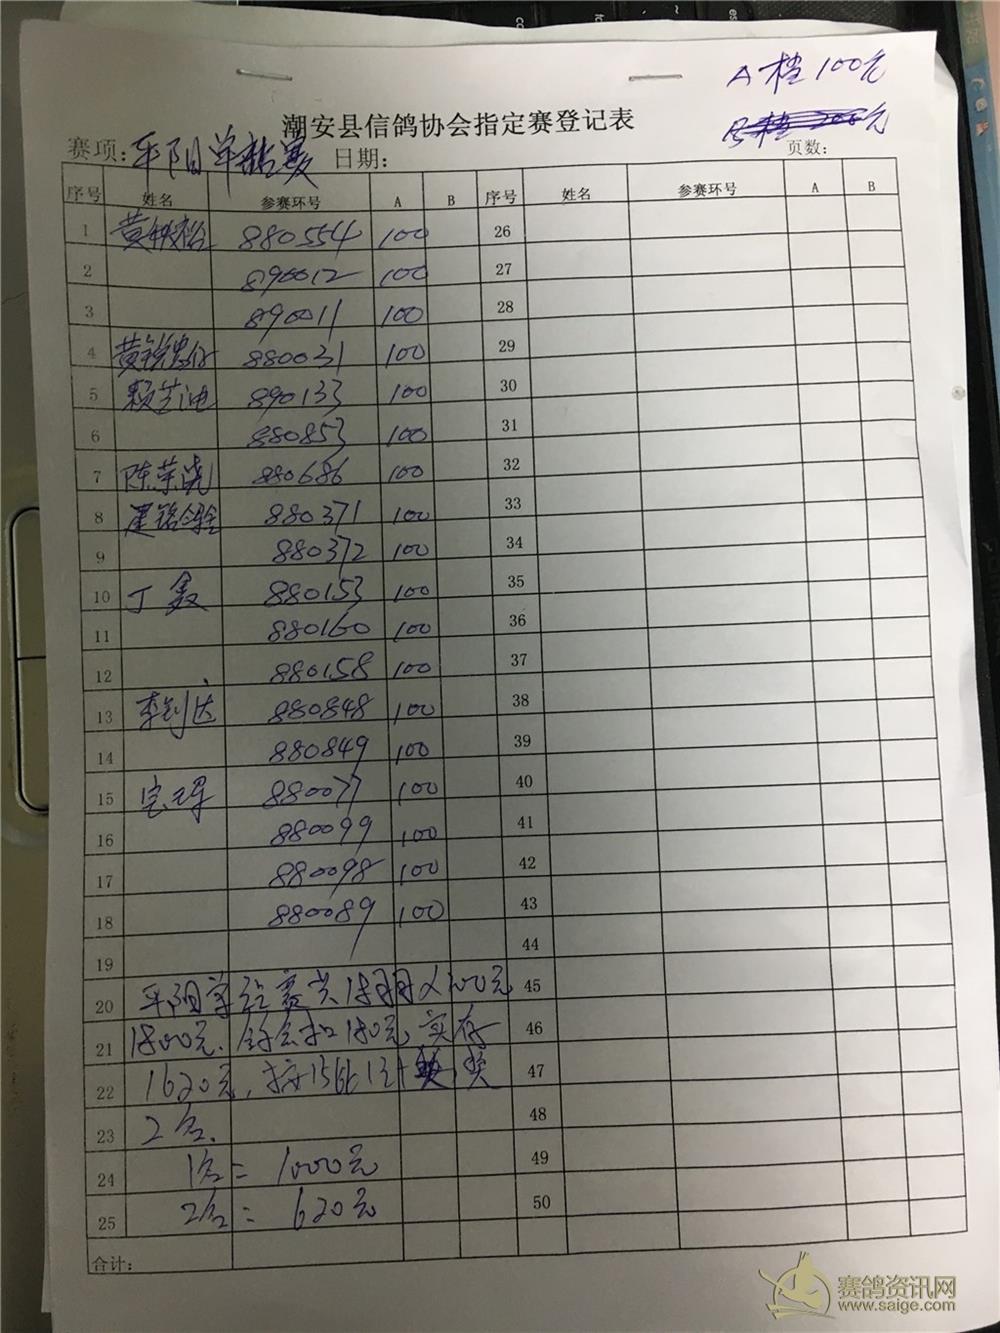 A档100元
潮安县信鸽协会指定赛登记表
B档200元
赛项:平阳单指赛 日期: 页数:
序号 姓名 参赛环号 A B 序号 姓名 参赛环号 A B
1 黄 880554 100 26
2 890012 100 27
3 890011 100 28
4 黄 880031 100 29
5 890133 100 30
6 880853 100 31
7 陈荣晓 880686 100 32
8 880371 100 33
9 880372 100 34
10 丁 880153 100 35
11 880160 100 36
12 880158 100 37
13 李剑达 880848 100 38
14 880849 100 39
15 880077 100 40
16 880099 100 41
17 880098 100 42
18 880089 100 43
19 44
20 平阳单指赛共18羽×100元 45
21 1800元, 扣180元 实存 46
22 1620元, 按 奖 47
23 2名. 48
24 1名= 1000元 49
25 2名= 620元 50
合计:
赛鸽资讯网
www.saige.com